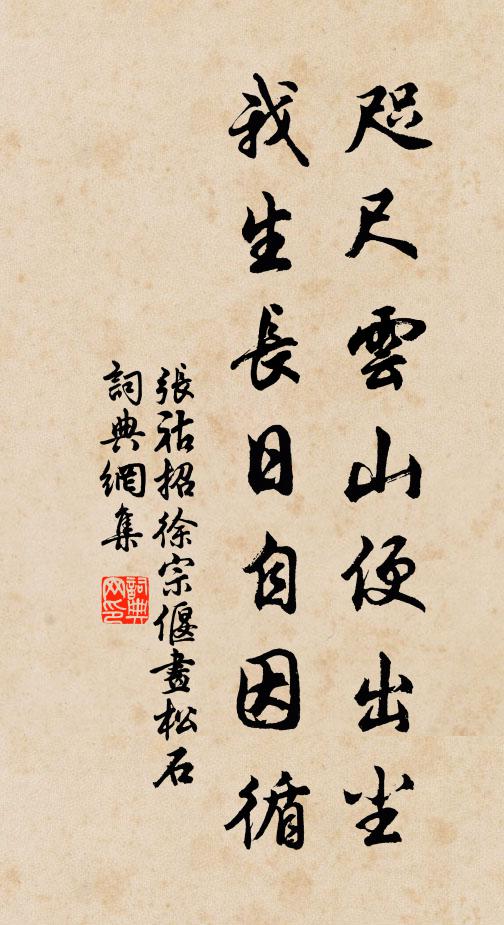 咫尺雲山便出尘
我生長日自因循
張祜招徐宗偃畫松石
詞典網集
詞典
网印